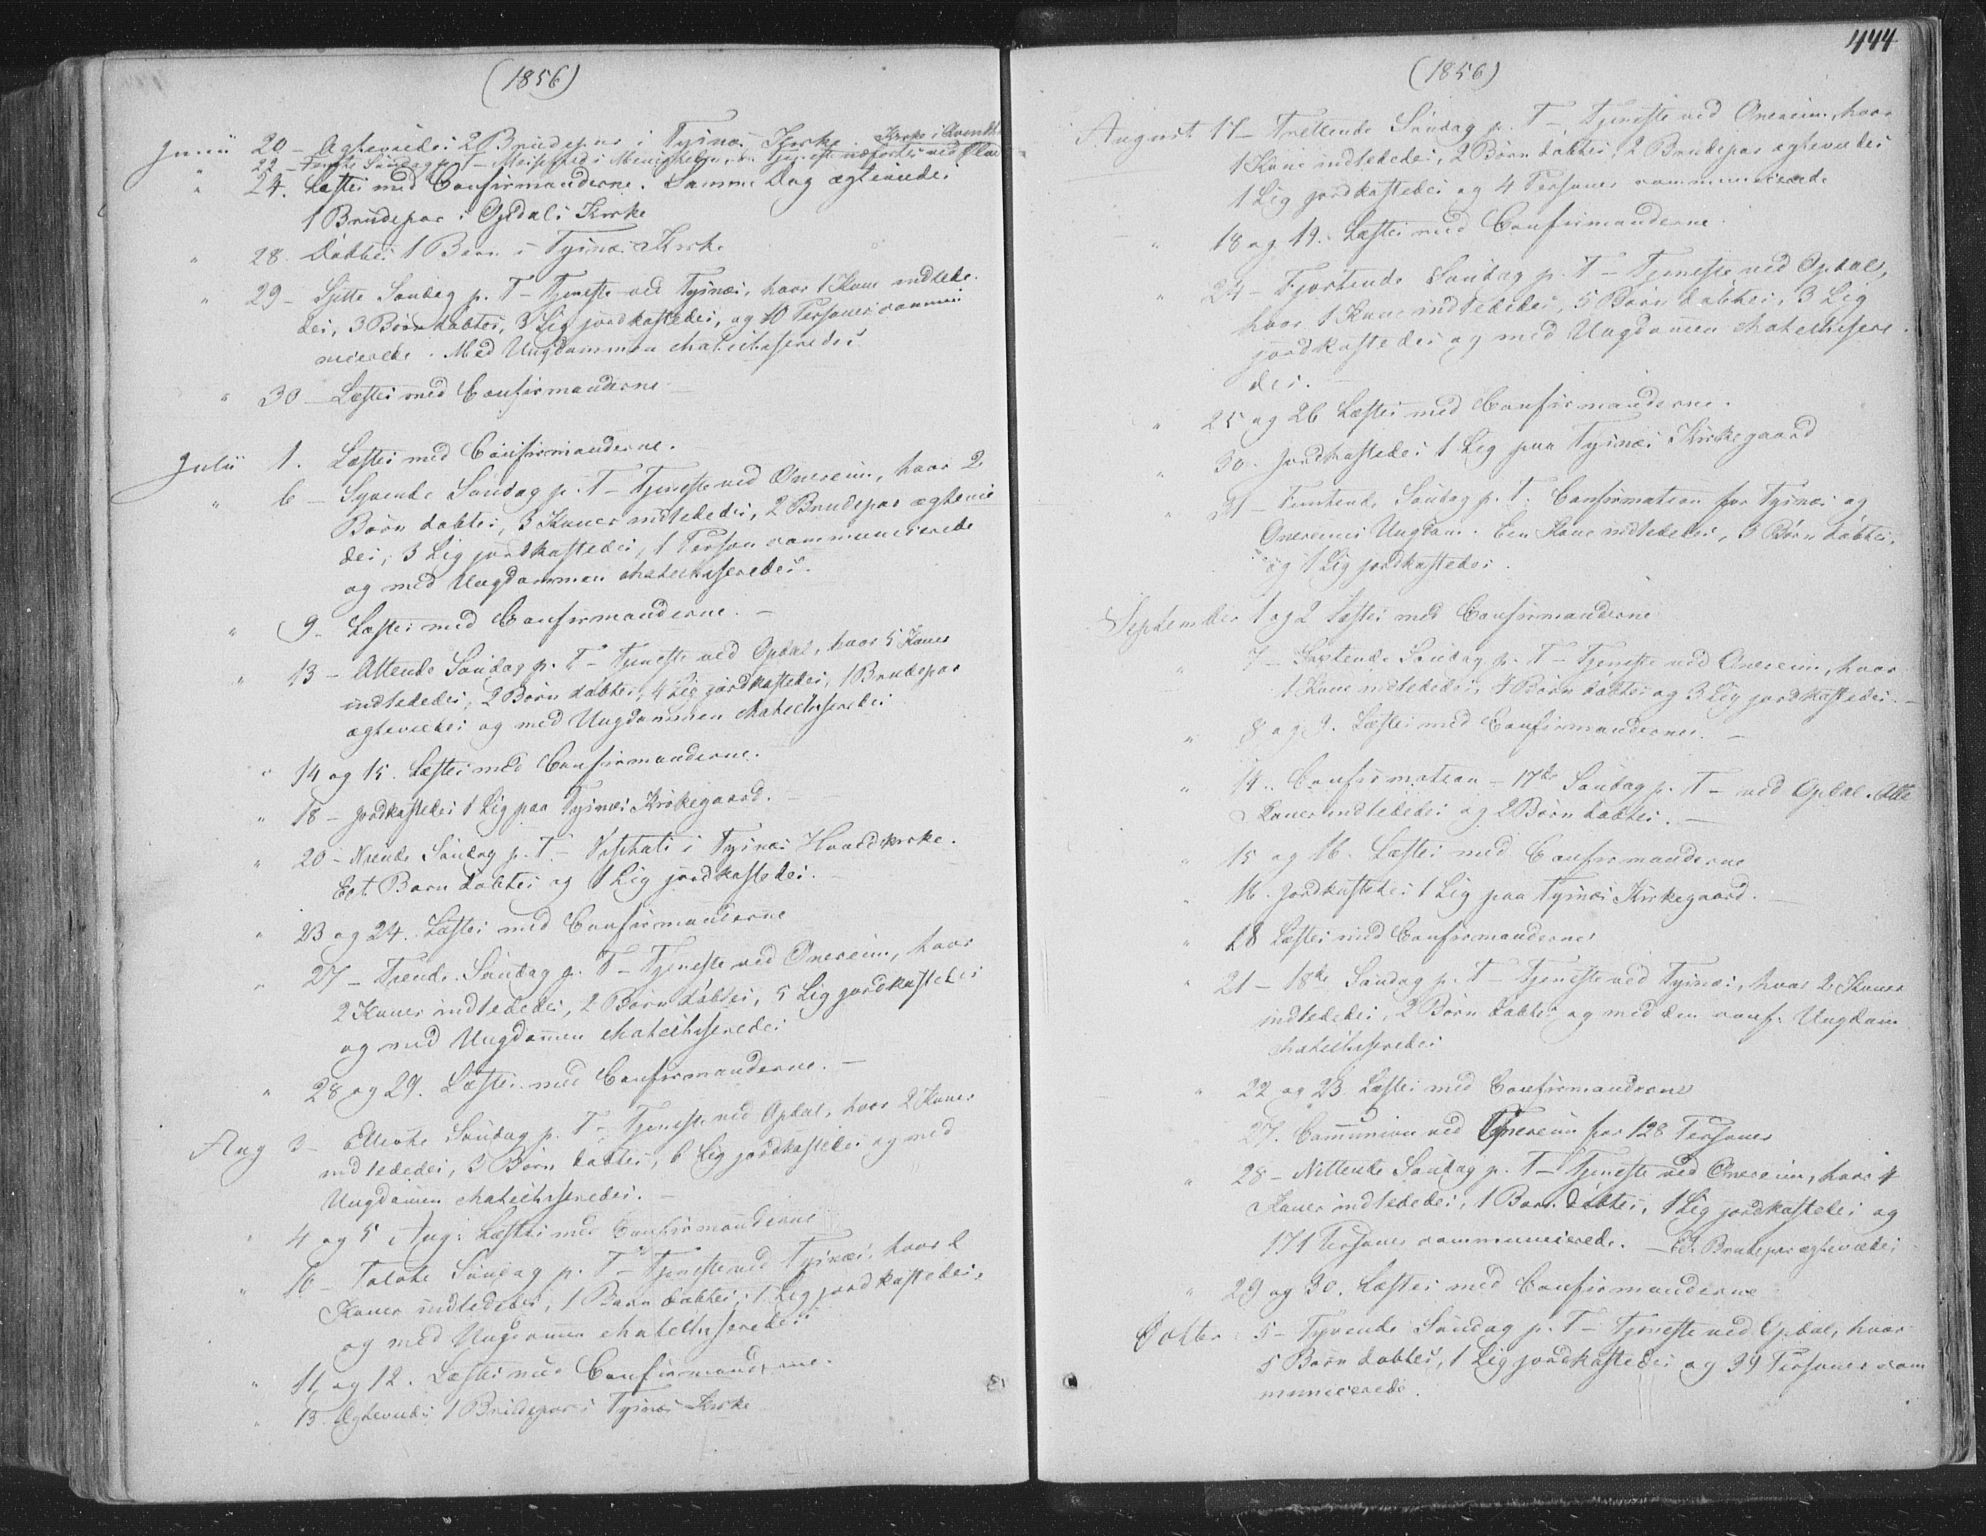 (1856)
Junii 20 – Ægteviedes 2 Brudepar i Tysnæs Kirke
" 22 – Femte Søndag p. T –
" 24. Læstes med Confirmanderne. Samme Dag ægteviedes
1 Brudepar i Opdals Kirke
" 28. Døbtes 1 Barn i Tysnæs Kirke
" 29 – Sjette Søndag p. T – Tjeneste ved Tysnæs, hvor 1 Kone indlede-
des, 3 Børn døbtes, 3 Lig jordkastedes, og 10 Personer commu
nicerede. Med Ungdommen Katechiseredes
" 30 – Læstes med Confirmanderne –
Julii 1. Læstes med Confirmanderne.
" 6 – Syvende Søndag p. T – Tjeneste ved Onereim, hvor 2
Børn døbtes, 3 Koner indlededes, 2 Brudepar ægtevie
des, 3 Lig jordkastedes, 1 Person communicerede
og med Ungdommen Katechiseredes.
" 9. Læstes med Confirmanderne. –
" 13 – Ottende Søndag p. T – Tjeneste ved Opdal, hvor 5 Koner
indlededes, 2 Børn døbtes, 4 Lig jordkastedes, 1 Brudepar
ægteviedes og med Ungdommen Katechiseredes
" 14 og 15. Læstes med Confirmanderne.
" 18 – Jordkastedes 1 Lig paa Tysnæs Kirkegaard. –
" 20 – Niende Søndag p. T. – Visitats i Tysnæs Hovedkirke.
Eet Barn døbtes og 1 Lig jordkastedes. –
" 23 og 24. Læstes med Confirmanderne
" 27 – Tiende Søndag p. T – Tjeneste ved Onereim, hvor
2 Koner indlededes, 2 Børn døbtes, 5 Lig jordkastedes
og med Ungdommen Katechiseredes
" 28 og 29. Læstes med Confirmanderne. –
Aug 3 – Ellevte Søndag p. T – Tjeneste ved Opdal, hvor 2 Koner
indlededes, 3 Børn døbtes, 6 Lig jordkastedes og med
Ungdommen Katechiseredes. –
" 4 og 5 Aug: Læstes med Confirmanderne
" 10 – Tolvte Søndag p. T – Tjeneste ved Tysnæs, hvor 2
Koner indlededes, 1 Barn døbtes, 1 Lig jordkastedes,
og med Ungdommen Katechiseredes
" 11 og 12. Læstes med Confirmanderne.
" 15. Ægteviedes 1 Brudepar i Tysnæs Kirke
444
(1856)
August 17 – Trettende Søndag p. T – Tjeneste ved Onereim, hvor
1 Kone indlededes, 2 Børn døbtes, 2 Brudepar ægteviedes
1 Lig jordkastedes og 4 Personer communicerede
" 18 og 19. Læstes med Confirmanderne
" 24 – Fjortende Søndag p. T – Tjeneste ved Opdal,
hvor 1 Kone indlededes, 5 Børn døbtes, 3 Lig
jordkastedes og med Ungdommen Katechisere
des. –
" 25 og 26 Læstes med Confirmanderne.
" 30. Jordkastedes 1 Lig paa Tysnæs Kirkegaard
" 31 – Femtende Søndag p. T. Confirmation for Tysnæs og
Onereims Ungdom. Een Kone indlededes, 3 Børn døbtes,
og 1 Lig jordkastedes.
September 1 og 2 Læstes med Confirmanderne
" 7 – Sextende Søndag p. T – Tjeneste ved Onereim, hvor
1 Kone indlededes, 4 Børn døbtes og 3 Lig jordkastedes. –
" 8 og 9. Læstes med Confirmanderne. –
" 14. Confirmation – 17de Søndag p. T – ved Opdal. Otte
Koner indlededes og 2 Børn døbtes. –
" 15 og 16. Læstes med Confirmanderne
" 16. Jordkastedes 1 Lig paa Tysnæs Kirkegaard. –
" 18 Læstes med Confirmanderne
" 21 – 18de Søndag p. T – Tjeneste ved Tysnæs, hvor 2 Koner
indlededes, 2 Børn døbtes og med den conf. Ungdom
Katechiseredes
" 22 og 23 Læstes med Confirmanderne
27. Communion ved Onereim for 128 Personer
" 28 – Nittende Søndag p. T – Tjeneste ved Onereim, hvor 4
Koner indlededes, 1 Barn døbtes, 1 Lig jordkastedes og
171 Personer communicerede. – Et Brudepar ægteviedes
" 29 og 30. Læstes med Confirmanderne
Octber 5 – Tyvende Søndag p. T – Tjeneste ved Opdal, hvor
5 Børn døbtes, 1 Lig jordkastedes og 34 Personer com
municerede.